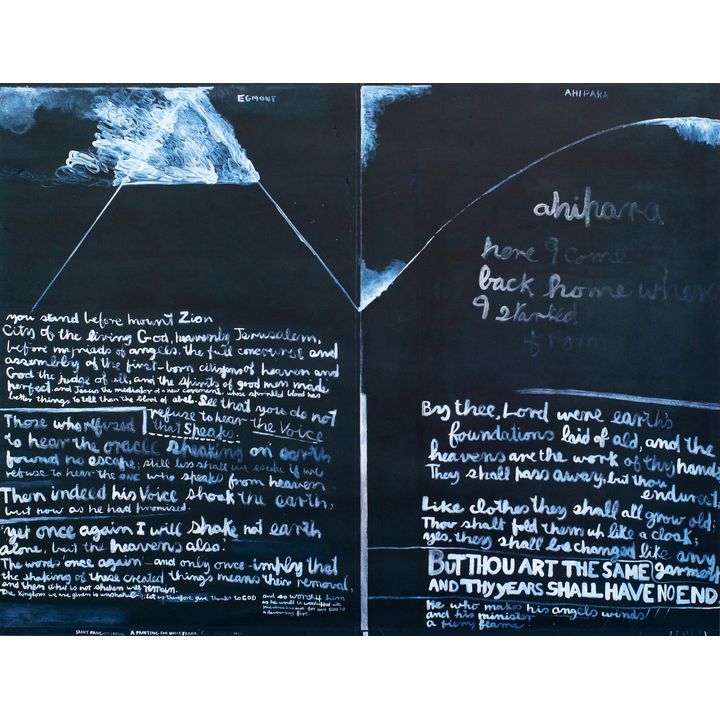 EGMONT
you stand before mount Zion
City of the living God, heavenly Jerusalem,
before myriads of angels, the full concourse and
assembly of the first-born citizens of heaven and
God the judge of all, and the spirits of good men made
perfect, and Jesus the mediator of a new covenant, whose sprinkled blood has
better things to tell than the blood of abel. See that you do not
refuse to hear the Voice
that Speaks.
Those who refused
to hear the oracle speaking on earth
found no escape; still less shall we escape if we
refuse to hear the one who speaks from heaven
Then indeed his voice shook the earth,
but now as he had promised.
"yet once again I will shake not earth
alone, but the heavens also.
The words 'once again' – and only once – imply that
the shaking of these created things means their removal,
and then what is not shaken will remain.
The Kingdom we are given is unshakable; let us therefore give thanks to GOD
and so worship him
as he would be worshipped with
a devouring fire.
A PAINTING FOR
AHIPARA
ahipara
here I come
back home where
I started
from
By thee, Lord were earth's
foundations laid of old, and the
heavens are the work of thy hands
They shall pass away, but thou
endurest
Like clothes they shall all grow old;
Thou shalt fold them up like a cloak;
yes, they shall be changed like any
garment
BUT THOU ART THE SAME
AND THY YEARS SHALL HAVE NO END.
He who makes his angels winds
and his minister
a fiery flame